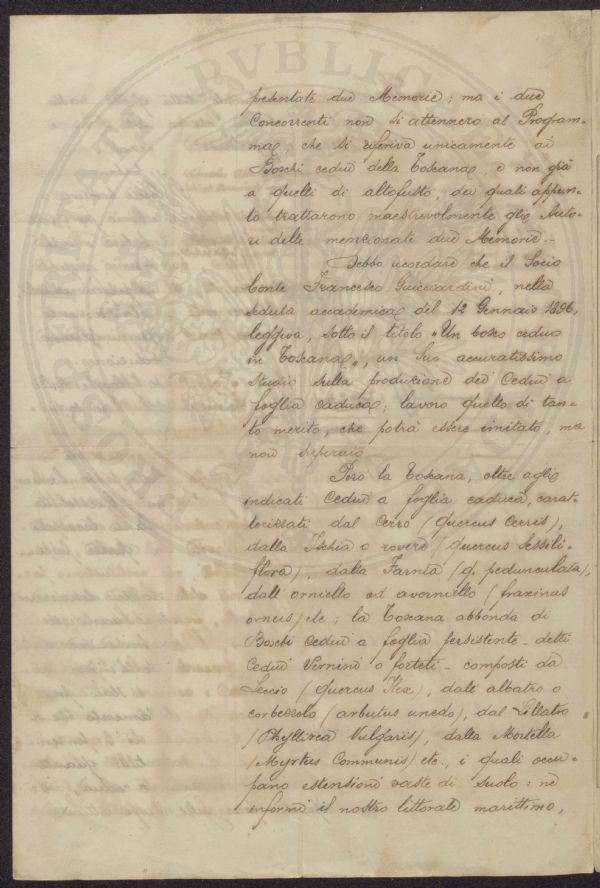 presentate due Memorie; ma i due
Concorrenti non si attennero al Program-
ma, che si riferiva unicamente ai
Boschi cedui della Toscana, e non già
a quelli di altofusto, dei quali appun-
to trattarono maestrevolmente gli Auto-
ri delle menzionate due Memorie.-
Debbo ricordare che il Socio
Conte Francesco Guicciardini, nella
seduta accademica del 12 Gennaio 1896,
leggeva, sotto il titolo "Un bosco ceduo
in Toscana", un suo accuratissimo
studio sulla produzione dei Cedui a
foglia caduca; lavoro quello di tan-
to merito, che potrà essere imitato, ma
non superato
Però la Toscana, oltre agli
indicati Cedui a foglia caduca, carat-
terizzati dal Cerro (Quercus Cerris),
dalla Ischia o rovere (Quercus Sessili-
flora), dalla Farnia (q. pedunculata),
dall'orniello od avorniello (fraxinus
ornus) etc; la Toscana abbonda di
Boschi Cedui a foglia persistente - detti
Cedui Vernini o forteti - composti da
Leccio (Quercus Ilex), dall'albatro o
corbezzolo (arbutus unedo), dal Lillatro
(Phyllirea Vulgaris), dalla Mortella
(Myrtus Communis) etc., i quali occu-
pano estensioni vaste di suolo: ne
informi il nostro littorale marittimo,
PVBLIC